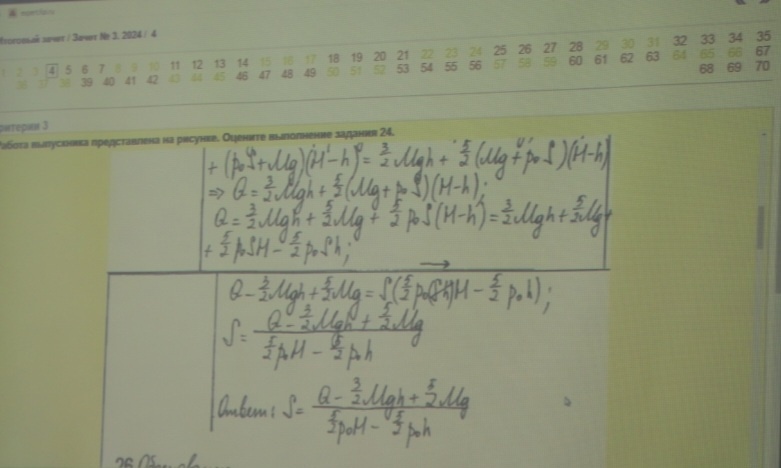 Итоговый зачет / Зачет № 3. 2024 / 4
1 2 3 4 5 6 7 8 9 10 11 12 13 14 15 16 17 18 19 20 21 22 23 24 25 26 27 28 29 30 31 32 33 34 35
36 37 38 39 40 41 42 43 44 45 46 47 48 49 50 51 52 53 54 55 56 57 58 59 60 61 62 63 64 65 66 67
68 69 70
ритерии 3
Работа выпускника представлена на рисунке. Оцените выполнение задания 24.
+ (p₀S+Mg)(H-h) = 3/2 Mgh + 5/2 (Mg+p₀S)(H-h)
=> Q = 3/2 Mgh + 5/2 (Mg + p₀S)(H-h);
Q = 3/2 Mgh + 5/2 Mg + 5/2 p₀S(H-h) = 3/2 Mgh + 5/2 Mg+
+ 5/2 p₀SH - 5/2 p₀Sh;
Q - 3/2 Mgh + 5/2 Mg = S(5/2 p₀ H - 5/2 p₀h);
S = (Q - 3/2 Mgh + 5/2 Mg) / (5/2 p₀H - 5/2 p₀h)
Ответ: S = (Q - 3/2 Mgh + 5/2 Mg) / (5/2 p₀H - 5/2 p₀h)
26